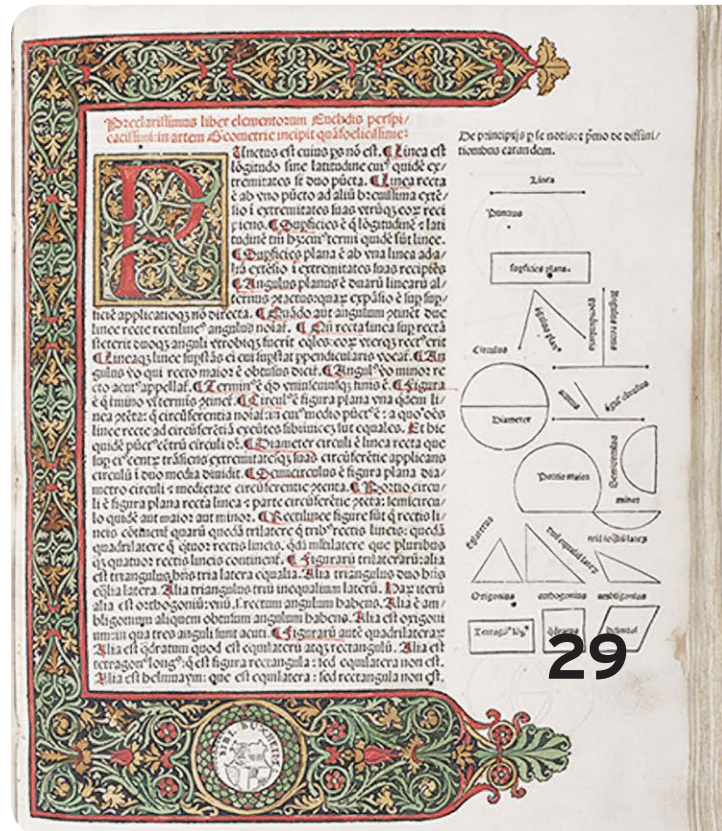 Preclarissimus liber elementorum Euclidis perspi/
cacissimi: in artem Geometrie incipit quãfoelicissime:
Punctus est cuius ps nõ est. ¶ Linea est
lõgitudo sine latitudine cui⁹ quidẽ ex/
tremitates sũt duo pũcta. ¶ Linea recta
ẽ ab vno pũcto ad aliũ breuissima extẽ/
sio ĩ extremitates suas vtrũqꝫ eoꝝ reci
piens. ¶ Supficies ẽ q̃ lõgitudinẽ ⁊ lati
tudinẽ tm̃ hꝫ: cui⁹ termi quidẽ sũt linee.
¶ Supficies plana ẽ ab vna linea ad a/
liã extẽsio ĩ extremitates suas recipiẽs
¶ Angulus planus ẽ duarũ linearũ al/
ternus ꝯtactus: quaꝝ expãsio ẽ sup sup/
ficiẽ applicatioqꝫ nõ directa. ¶ Quãdo aut angulum ꝯtinẽt due
linee recte rectiline⁹ angulus noiat̃. ¶ Qñ recta linea sup rectã
steterit duoqꝫ anguli vtrobiqꝫ fuerĩt eq̃les: eoꝝ vterqꝫ rect⁹ erit
¶ Lineaqꝫ linee supstãs ei cui supstat ppendicularis vocat̃. ¶ An
gulus vo qui recto maior ẽ obtusus dicit̃. ¶ Angul⁹ vo minor re
cto acut⁹ appellat̃. ¶ Termin⁹ ẽ qd vniuscuiusqꝫ finis ẽ. ¶ Figura
ẽ q̃ tmino vl̃ termis ꝯtinet̃. ¶ Circul⁹ ẽ figura plana vna qdem li/
nea ꝯtẽta: q̃ circũferentia noiat̃: in cui⁹ medio pũct⁹ ẽ: a quo oẽs
linee recte ad circũferẽtiã exeũtes sibiinuicẽ sũt equales. Et hic
quidẽ pũct⁹ cẽtrũ circuli dr̃. ¶ Diameter circuli ẽ linea recta que
sup ei⁹ centꝝ trãsiens extremitatesqꝫ suas circũferẽtie applicans
circulũ ĩ duo media diuidit. ¶ Semicirculus ẽ figura plana dia/
metro circuli ⁊ medietate circũferentie ꝯtenta. ¶ Portio circu/
li ẽ figura plana recta linea ⁊ parte circũferẽtie ꝯtẽta: semicircu/
lo quidẽ aut maior aut minor. ¶ Rectilinee figure sũt q̃ rectis li/
neis cõtinent̃ quarũ quedã trilatere q̃ trib⁹ rectis lineis: quedã
quadrilatere q̃ qtuor rectis lineis. qdã mltilatere que pluribus
qꝫ quatuor rectis lineis continent̃. ¶ Figurarũ trilaterarũ: alia
est triangulus hñs tria latera equalia. Alia triangulus duo hñs
eq̃lia latera. Alia triangulus triũ inequalium laterũ. Haꝝ iterũ
alia est orthogoniũ: vnũ .s. rectum angulum habens. Alia ẽ am/
bligonium aliquem obtusum angulum habens. Alia est oxigoni
um: in qua tres anguli sunt acuti. ¶ Figurarũ autẽ quadrilateraꝝ
Alia est q̃dratum quod est equilaterũ atqꝫ rectangulũ. Alia est
tetragon⁹ long⁹: q̃ est figura rectangula: sed equilatera non est.
Alia est helmuaym: que est equilatera: sed rectangula non est.
De principijs p se notis: ⁊ pmo de diffini/
tionibus earandem.
Linea
Punctus
supficies plana.
Circulus
ppendicularis
Angulus rectus
acutus
Diameter
Portio maior
Semicirculus
minor
Oxigonius
orthogonius
ambligonius
Tetragõ⁹ lõg⁹
q̃dratus
29